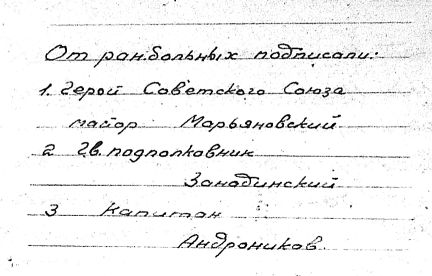 От ран.больных подписали:
1. Герой Советского Союза
майор Марьяновский
2 Гв. подполковник
Занадинский
3 Капитан
Андроников.